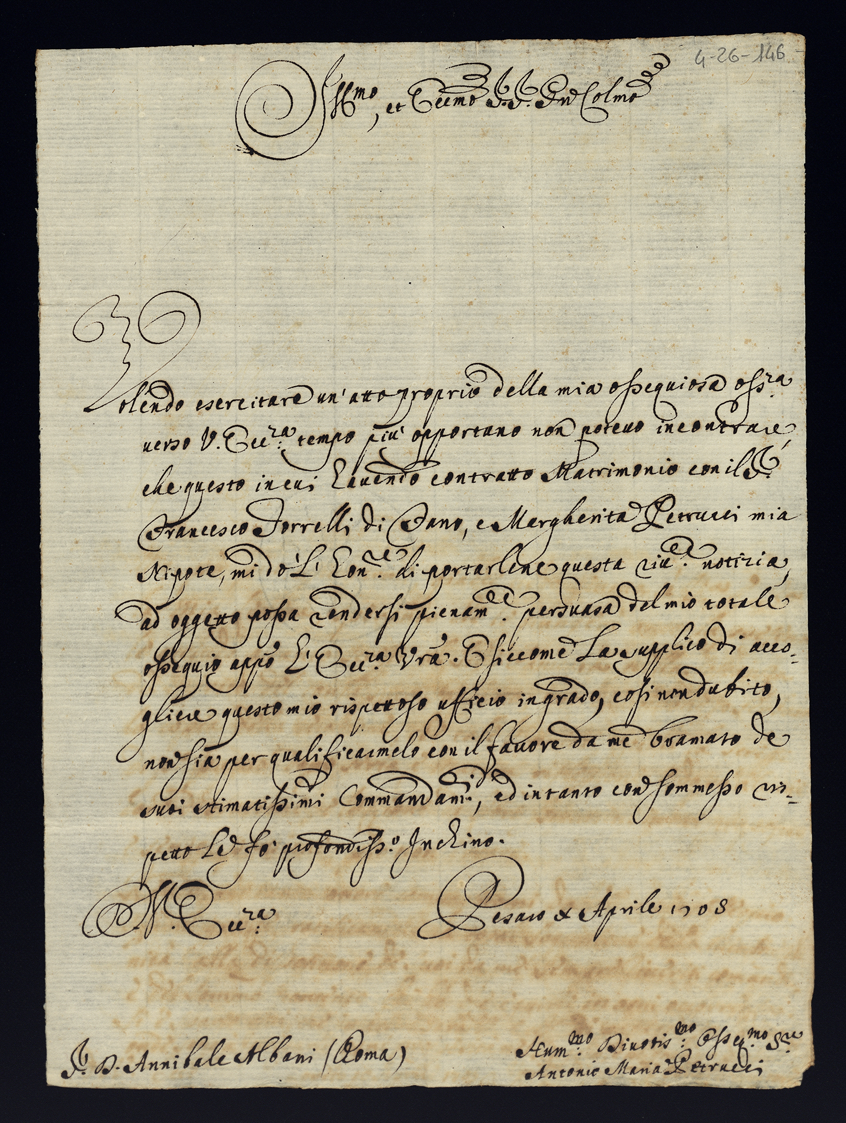 4-26-146
Ill.mo, et Ecc.mo Sig. Sig. Pr'on Colmo
Volendo esercitare un'atto proprio della mia ossequiosa oss.za
verso V. Ecc.za tempo più opportuno non potevo incontrare,
che questo in cui havendo contratto Matrimonio con il Sig.
Francesco Torrelli di Fano, e Margherita Petrucci mia
Nipote, mi dò l'hon.re di portarlene questa riv.te notizia,
ad oggetto possa rendersi pienam.te persuasa del mio totale
ossequio appo l'Ecc.za Vra. E siccome La supplico di acco-
gliere questo mio rispettoso ufficio in grado, così non dubito,
non sia per qualificarmelo con il favore da me bramato de
suoi stimatissimi Commandam.ti, ed intanto con sommesso ris-
petto Le fò profondiss.o Inchino.
V. Ecc.za
Pesaro Aprile 1708
Sig. D. Annibale Albani (Roma)
Hum.mo Divotis.mo Osseq.mo S.re
Antonio Maria Petrucci